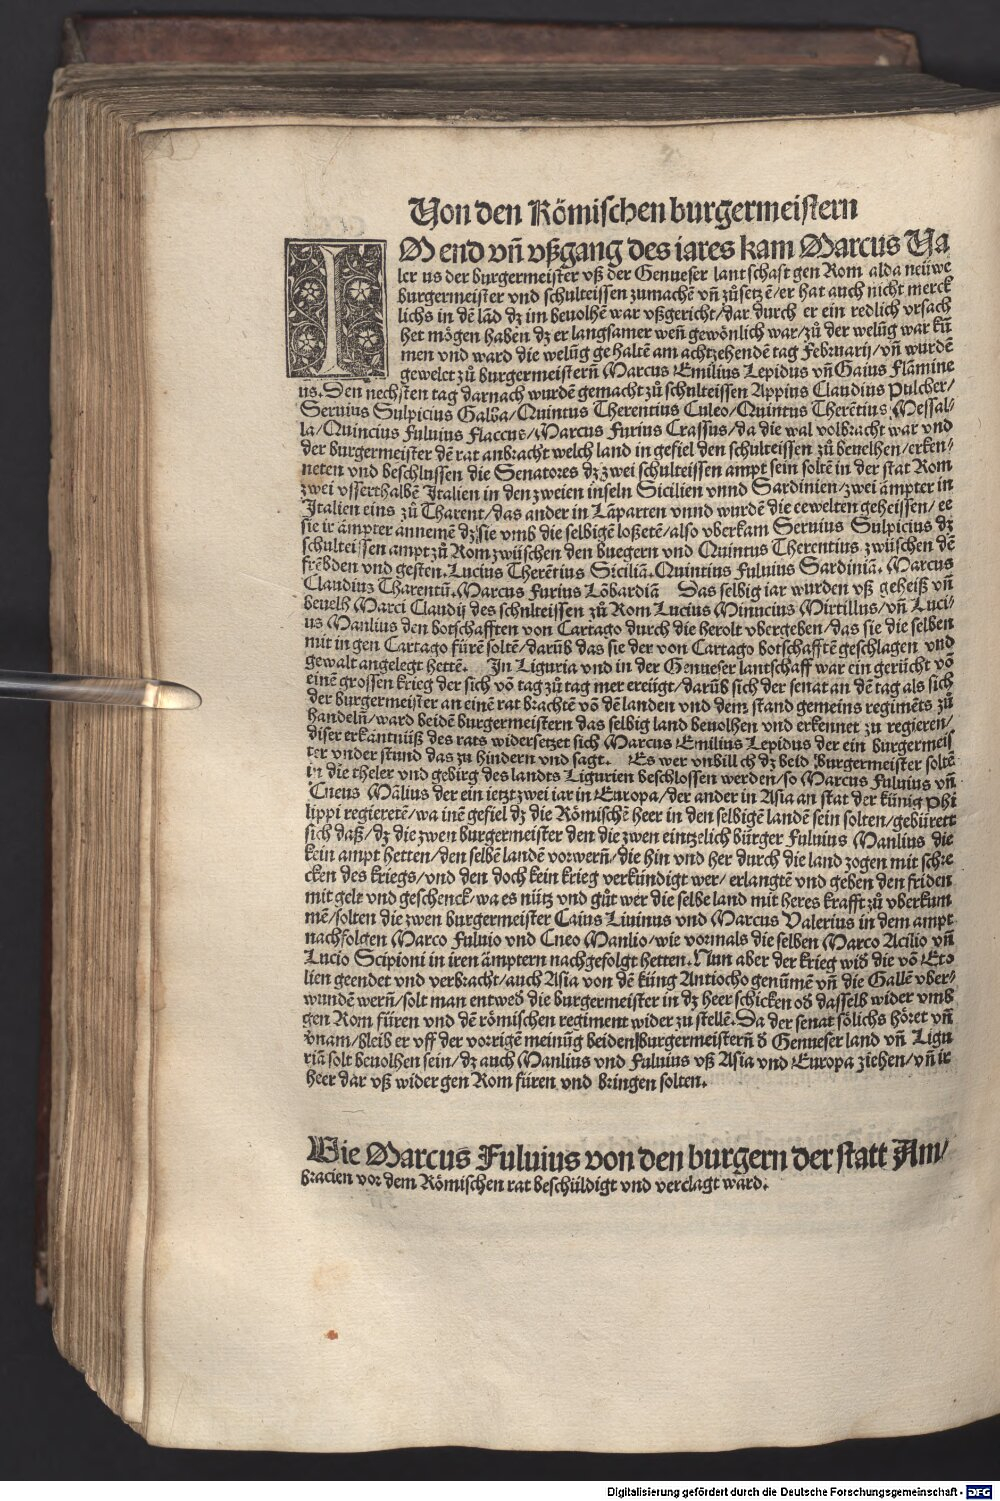 Von den Römischen burgermeistern
IM end vñ vßgang des iares kam Marcus Va
ler us der burgermeister vß der Genueser lantschafft gen Rom alda neüwe
burgermeister vnd schulteissen zumachẽ vñ zůsetzẽ/er hat auch nicht merck
lichs in dẽ lãd dz im beuolhẽ war vßgericht/dar durch er ein redlich vrsach
het mögen haben dz er langsamer weñ gewönlich war/zů der welũg war kũ
men vnd ward die welũg gehaltẽ am achtzehendẽ tag Februarij/vñ wurdẽ
gewelet zů burgermeisterñ Marcus Emilius Lepidus vñ Gaius Flãmine
us. Den nechsten tag darnach wurdẽ gemacht zů schulteissen Appius Claudius Pulcher/
Seruius Sulpicius Galba/Quintus Therentius Culeo/Quintus Therẽtius Messal-
la/Quincius Fuluius Flaccus/Marcus Furius Crassus/da die wal volbracht war vnd
der burgermeister dẽ rat anbracht welch land in gefiel den schulteissen zů beuelhen/erken-
neten vnd beschlussen die Senatores dz zwei schulteissen ampt sein soltẽ in der stat Rom
zwei vsserthalbẽ Italien in den zweien inseln Sicilien vnnd Sardinien/zwei ãmpter in
Italien eins zů Tharent/das ander in Lãparten vnnd wurdẽ die eewelten geheissen/ee
sie ir ãmpter annemẽ dz sie vmb die selbigẽ loßetẽ/also vberkam Seruius Sulpicius dz
schulteissen ampt zů Rom zwüschen den buegern vnd Quintus Therentius zwüschen dẽ
frẽbden vnd gesten. Lucius Therẽtius Siciliã. Quintius Fuluius Sardiniã. Marcus
Claudius Tharentũ. Marcus Furius Lõbardiã Das selbig iar wurden vß geheiß vñ
beuelh Marci Claudij des schulteissen zů Rom Lucius Minucius Mirtillus/vñ Luci-
us Manlius den botschafften von Cartago durch die herolt vbergeben/das sie die selben
mit in gen Cartago fürẽ soltẽ/darũb das sie der von Cartago botschafftẽ geschlagen vnd
gewalt angelegt hettẽ. In Liguria vnd in der Genueser lantschaff war ein gerücht võ
einẽ grossen krieg der sich võ tag zů tag mer ereügt/darũb sich der senat an dẽ tag als sich
der burgermeister an einẽ rat brachtẽ võ dẽ landen vnd dem stand gemeins regimẽts zů
handeln/ward beidẽ burgermeistern das selbig land beuolhen vnd erkennet zu regieren/
diser erkãntnüß des rats widersetzet sich Marcus Emilius Lepidus der ein burgermeis
ter vnder stund das zu hindern vnd sagt. Es wer vnbillich dz beid burgermeister soltẽ
in die theler vnd gebirg des landts Ligurien beschlossen werden/so Marcus Fuluius vñ
Cneus Mãlius der ein ietzt zwei iar in Europa/der ander in Asia an stat der künig Phi
lippi regieretẽ/wa inẽ gefiel dz die Römischẽ heer in den selbigẽ landẽ sein solten/gebürett
sich daß/dz die zwen burgermeister den die zwen eintzelich bürger Fuluius Manlius die
kein ampt hetten/den selbẽ landẽ vorwerñ/die hin vnd her durch die land zogen mit schre
cken des kriegs/vnd den doch kein krieg verkündigt wer/ erlangtẽ vnd geben den friden
mit gelt vnd geschenck/wa es nütz vnd gůt wer die selbe land mit heres krafft zů vberkum
mẽ/solten die zwen burgermeister Caius Liuinus vnd Marcus Valerius in dem ampt
nachfolgen Marco Fuluio vnd Cneo Manlio/wie vormals die selben Marco Acilio vñ
Lucio Scipioni in iren ãmptern nachgefolgt hetten. Nun aber der krieg wid̃ die võ Eto
lien geendet vnd verbracht/auch Asia von dẽ küng Antiocho genũmẽ vñ die Gallẽ vber-
wundẽ werñ/solt man entwed̃ die burgermeister in dz heer schicken od̃ dasselb wider vmb
gen Rom füren vnd dẽ römischen regiment wider zu stellẽ. Da der senat sölichs höret vñ
vnam/bleib er vff der vorrigẽ meinũg beiden burgermeisterñ d̃ Genueser land vñ Ligu
riã solt beuolhen sein/dz auch Manlius vnd Fuluius vß Asia vnd Europa ziehen/vñ ir
heer dar vß wider gen Rom füren vnd bringen solten.
Wie Marcus Fuluius von den burgern der statt Am/
bracien vor dem Römischen rat beschüldigt vnd verclagt ward.
Digitalisierung gefördert durch die Deutsche Forschungsgemeinschaft - DFG